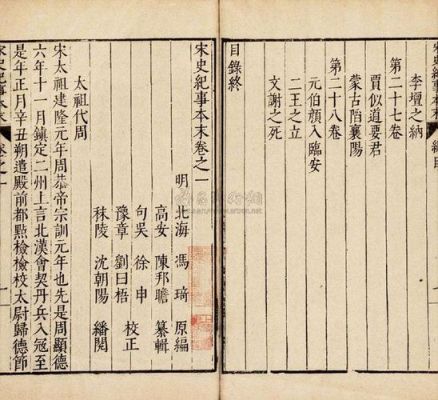 宋史紀事本末
李璮之納
第二十七卷
賈似道要君
蒙古陷襄陽
第二十八卷
元伯顏入臨安
二王之立
文謝之死
目錄終
宋史紀事本末卷之一
明 北海 馮琦 原編
高安 陳邦瞻 纂輯
句吳 徐申
豫章 劉曰梧 校正
秣陵 沈朝陽 繙閱
太祖代周
宋太祖建隆元年周恭帝宗訓元年也先是周顯德
六年十一月鎮定二州上言北漢會契丹兵入寇至
是年正月辛丑朔遣殿前都點檢檢校太尉歸德節
宋史紀事本末 卷之一 一